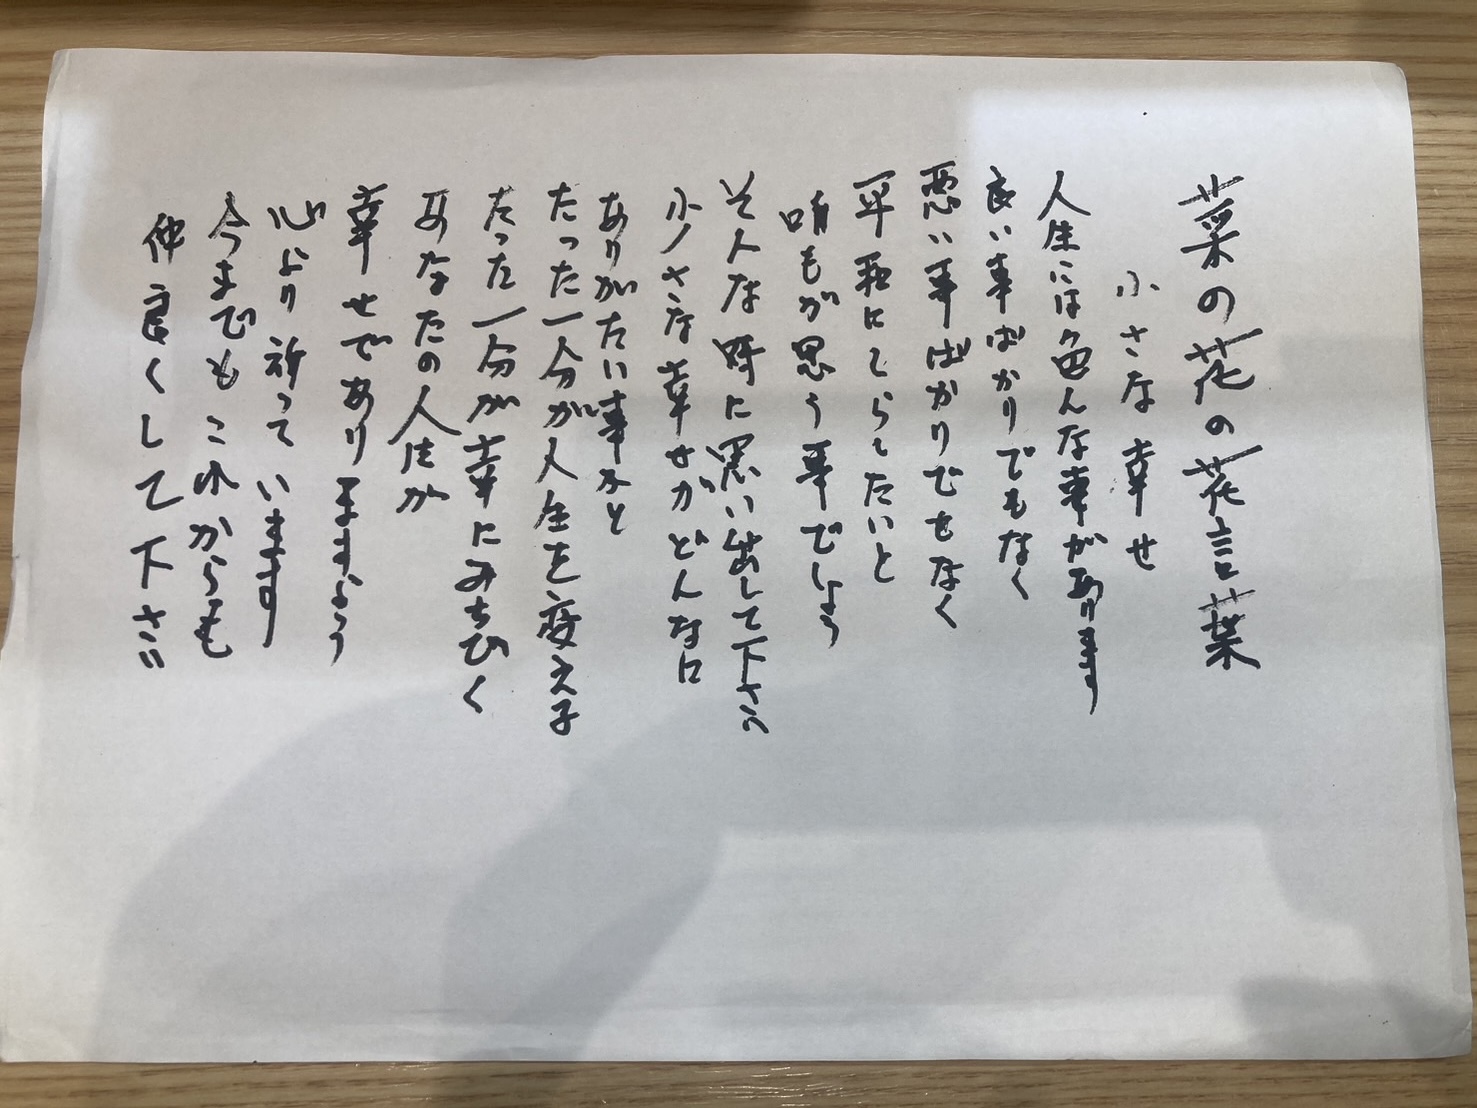 菜の花の花言葉
小さな幸せ
人生には色んな事があります
良い事ばかりでもなく
悪い事ばかりでもなく
平和にくらしたいと
誰もが思う事でしょう
そんな時に思い出して下さい
小さな幸せがどんなに
ありがたい事かと
たった一分が人生を変える
たった一分が幸にみちびく
あなたの人生が
幸せでありますよう
心より祈っています
今までもこれからも
仲良くして下さい